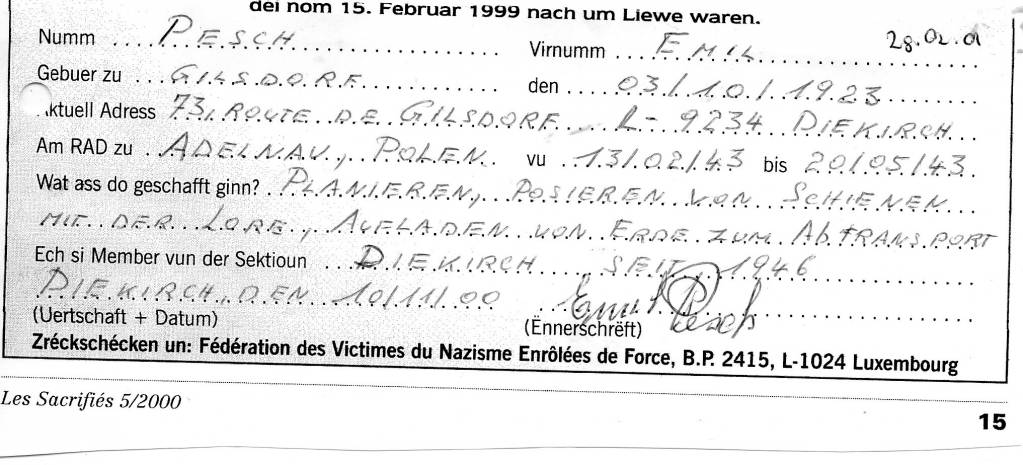 dei nom 15. Februar 1999 nach um Liewe waren.
28.02.01
Numm PESCH Virnumm EMIL
Gebuer zu GILSDORF den 03/10/1923
ktuell Adress 73, ROUTE DE GILSDORF L-9234 DIEKIRCH
Am RAD zu ADELNAU, POLEN vu 13/02/43 bis 20/05/43
Wat ass do geschafft ginn? PLANIEREN, POSIEREN VON SCHIENEN
MIT DER LORE, AUFLADEN VON ERDE ZUM ABTRANSPORT
Ech si Member vun der Sektioun DIEKIRCH, SEIT 1946
DIEKIRCH, DEN 10/11/00 Emil Pesch
(Uertschaft + Datum) (Ënnerschrëft)
Zréckschécken un: Fédération des Victimes du Nazisme Enrôlées de Force, B.P. 2415, L-1024 Luxembourg
Les Sacrifiés 5/2000
15